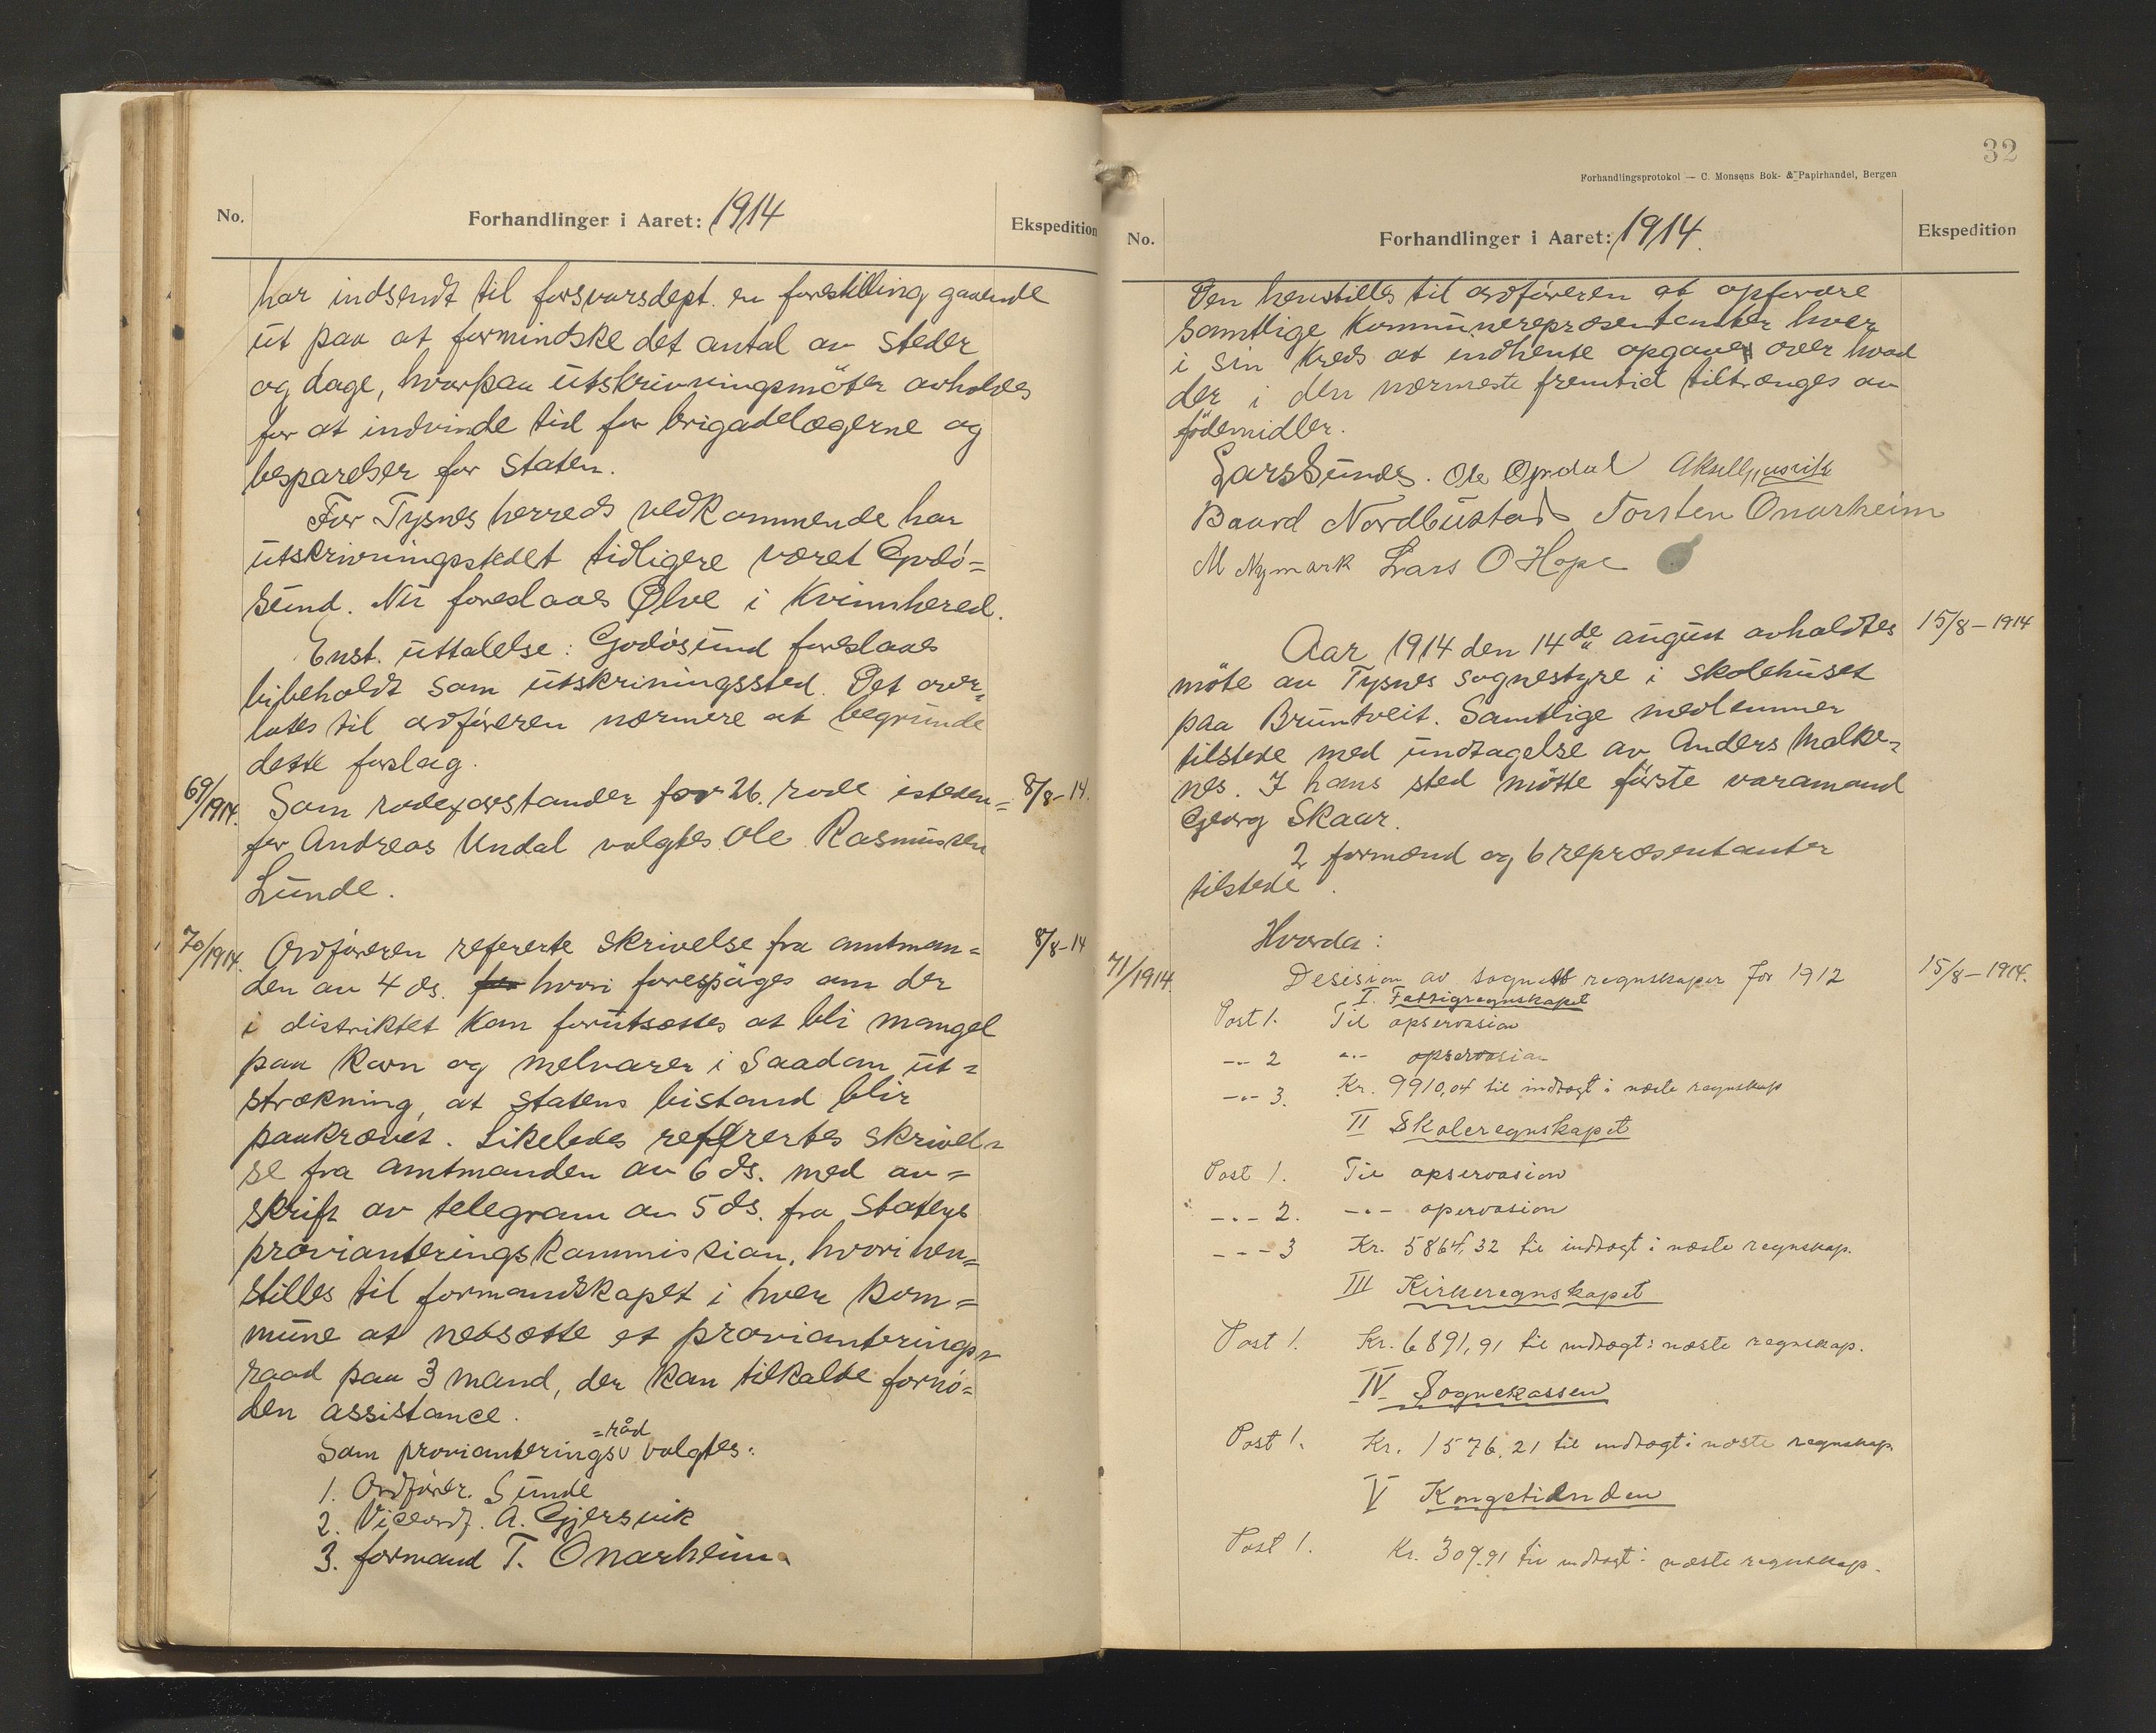 No.
Forhandlinger i Aaret: 1914
Ekspedition
har indsendt til forsvarsdept. en forestilling gaaende
ut paa at formindske det antal av steder
og dage, hvorpaa utskrivningsmöter avholdes
for at indvinde tid for brigadelægerne og
besparelser for staten.
For Tysnes herreds vedkommende har
utskrivningsstedet tidligere været Godö=
sund. Nu foreslaaes Ølve i Kvinnhered.
Enst. uttalelse: Godösund foreslaaes
bibeholdt som utskrivningssted. Det over=
lates til ordföreren nærmere at begrunde
dette forslag.
69/1914. Som rodeforstander for 26. rode isteden= 8/8-14.
for Andreas Undal valgtes Ole Rasmussen
Lunde.
70/1914. Ordföreren refererte skrivelse fra amtman= 8/8-14
den av 4 ds. for hvori forespöges om der
i distriktet kan forutsættes at bli mangel
paa korn og melvarer i saadan ut=
strækning, at statens bistand blir
paakrævet. Likeledes refererte skrivel=
se fra amtmanden av 6 ds. med av=
skrift av telegram av 5 ds. fra Statens
provianteringskommission, hvori hen=
stilles til formandskapet i hver kom=
mune at nedsætte et provianterings=
raad paa 3 mand, der kan tilkalde fornö=
den assistance.
=råd
Som provianterings valgtes:
1. Ordförer. Sunde
2. Viceordf. A. Gjersvik
3. formand T. Onarheim.
32
Forhandlingsprotokol — C. Monsens Bok- & Papirhandel, Bergen
No.
Forhandlinger i Aaret: 1914.
Ekspedition
Den henstilles til ordföreren at opfordre
samtlige kommunerepræsentanter hver
i sin kreds at indhente opgave over hvad
der i den nærmeste fremtid tiltrænges av
födemidler.
Lars Sunde. Ole Opdal Aksel Gjersvik
Baard Nordbustad Torsten Onarheim
M Nymark Lars O Hope
Aar 1914 den 14de august avholdtes 15/8-1914
möte av Tysnes sognestyre i skolehuset
paa Bruntveit. Samtlige medlemmer
tilstede med undtagelse av Anders Malke=
nes. I hans sted mötte förste varamand
Georg Skaar.
2 formænd og 6 repræsentanter
tilstede.
Hvorda:
71/1914. Desision av sognets regnskaper for 1912 15/8-1914.
I. Fattigregnskapet
Post 1. Til opservasion
-"- 2 -"- opservasion
-"- 3. Kr. 9910,04 til indtægt i næste regnskap
II Skoleregnskapet
Post 1. Til opservasion
-"- 2. -"- opervasion
-"- 3 Kr. 5864,32 til indtægt i næste regnskap.
III Kirkeregnskapet
Post 1. Kr. 6891,91 til indtægt i næste regnskap.
IV Sognekassen
Post 1. Kr. 1576,21 til indtægt i næste regnskap.
V Kongetienden
Post 1. Kr. 309.91 til indtægt i næste regnskap.